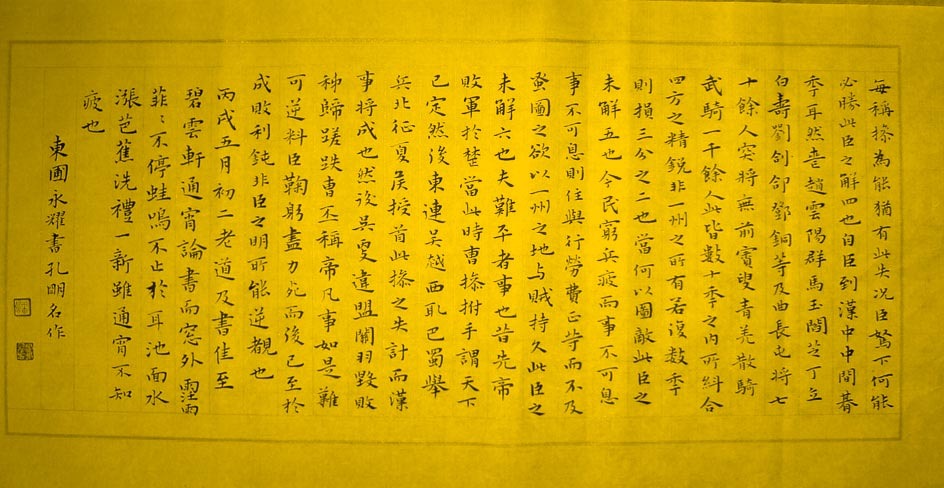 每稱操為能猶有此失况臣駑下何能
必勝此臣之解四也自臣到漢中中間朞
季耳然喪趙雲陽群馬玉閻芝丁立
白壽劉郃鄧銅等及曲長屯將七
十餘人突將無前賨叟青羌散騎
武騎一千餘人此皆數十季之內所糾合
四方之精銳非一州之所有若復數季
則損三分之二也當何以圖敵此臣之
未解五也今民窮兵疲而事不可息
事不可息則住與行勞費正等而不及
蚤圖之欲以一州之地与賊持久此臣之
未解六也夫難平者事也昔先帝
敗軍於楚當此時曹操拊手謂天下
已定然後東連吳越西取巴蜀舉
兵北征夏侯授首此操之失計而漢
事將成也然後吳更違盟關羽毀敗
秭歸蹉跌曹丕稱帝凡事如是難
可逆料臣鞠躬盡力死而後已至於
成敗利鈍非臣之明所能逆覩也
丙戌五月初二老道及書佳至
碧雲軒通宵論書而窓外
菲〻不停蛙鳴不止於耳池面水
漲芭蕉洗禮一新雖通宵不知
疲也
東圃永耀書孔明名作